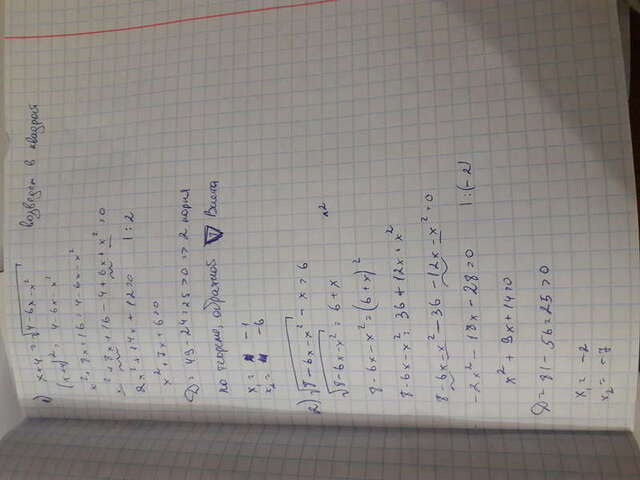 1) x+4 = √4-6x-x² возведем в квадрат
(x+4)² = 4-6x-x²
x²+8x+16 = 4-6x-x²
x²+8x+16-4+6x+x²=0
2x²+14x+12=0 |:2
x²+7x+6=0
D=49-24=25>0 => 2 корня
по теореме, обратной Виета
x₁= -1
x₂= -6
2) √8-6x-x² -x=6
√8-6x-x² = 6+x ^2
8-6x-x²=(6+x)²
8-6x-x²=36+12x+x²
8-6x-x²-36-12x-x²=0
-2x²-18x-28=0 |:(-2)
x²+9x+14=0
D=81-56=25>0
x₁= -2
x₂= -7